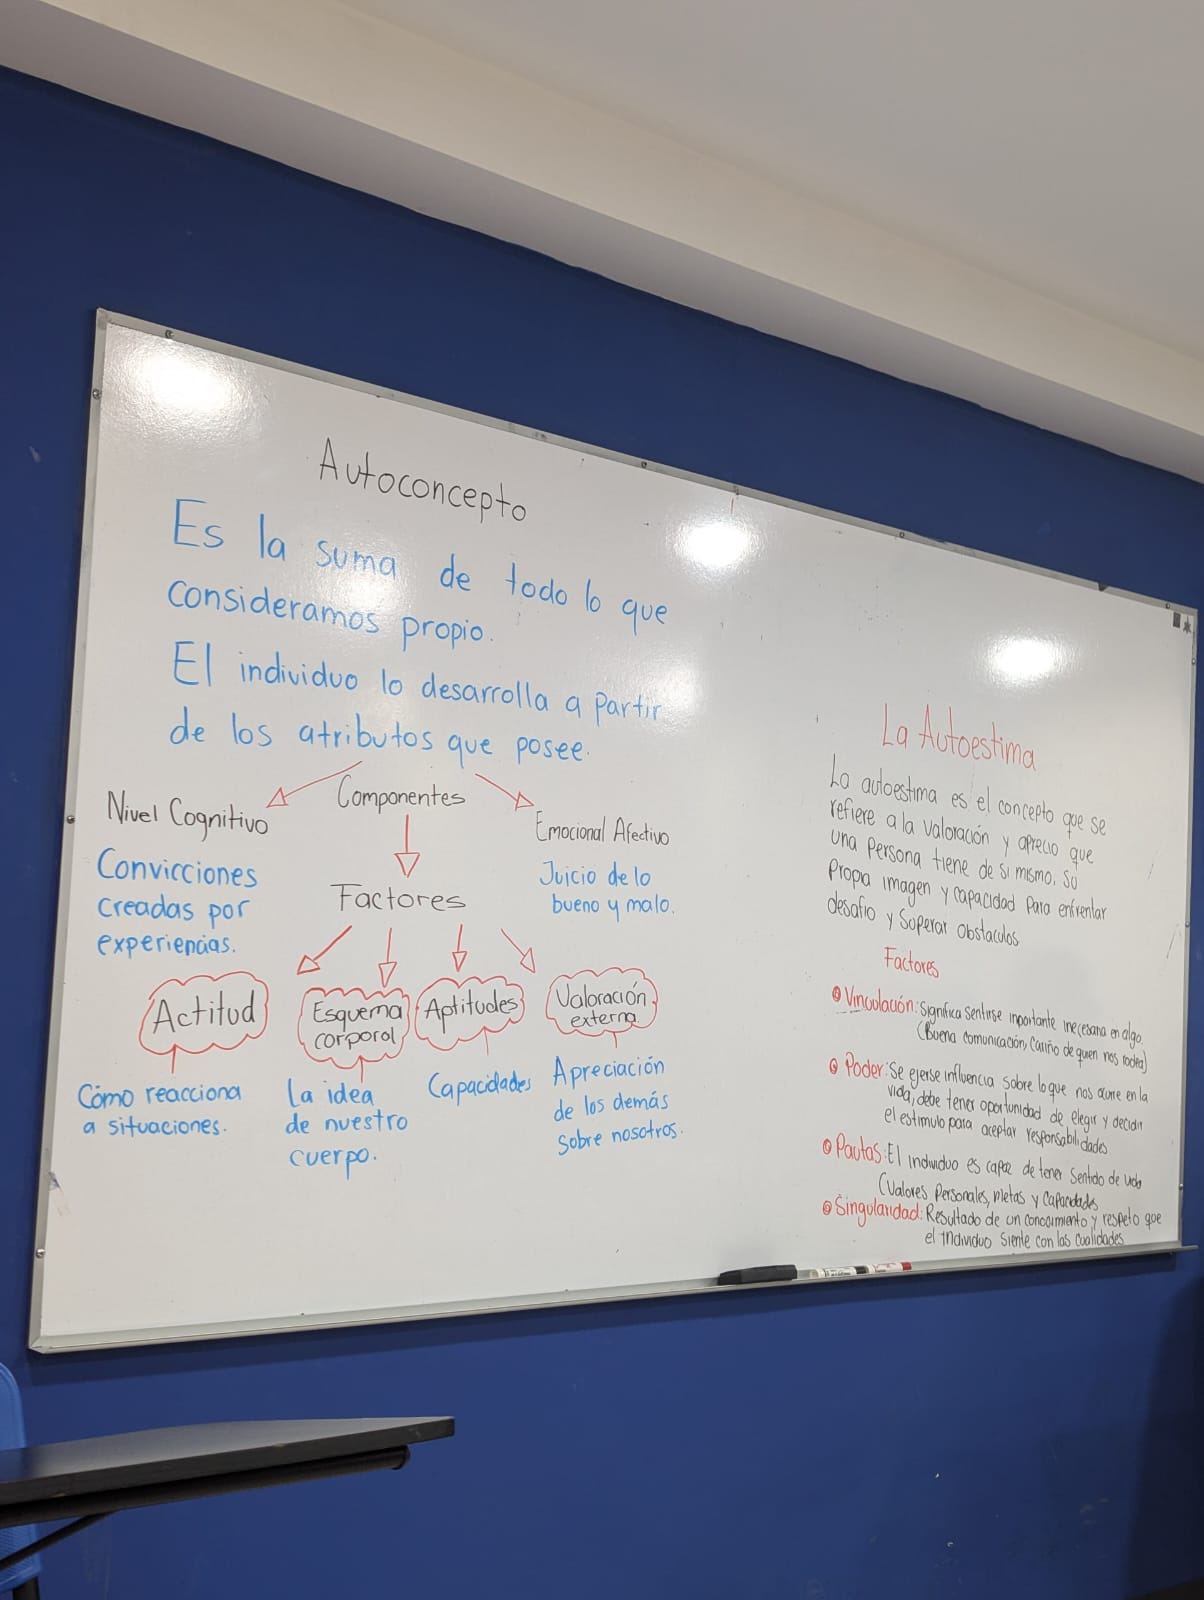 Autoconcepto
Es la suma de todo lo que
consideramos propio.
El individuo lo desarrolla a partir
de los atributos que posee.
Componentes
Nivel Cognitivo
Convicciones
creadas por
experiencias.
Emocional Afectivo
Juicio de lo
bueno y malo.
Factores
Actitud
Cómo reacciona
a situaciones.
Esquema
corporal
La idea
de nuestro
cuerpo.
Aptitudes
Capacidades
Valoración
externa
Apreciación
de los demás
sobre nosotros.
La Autoestima
La autoestima es el concepto que se
refiere a la valoración y aprecio que
una persona tiene de si mismo, su
propia imagen y capacidad para enfrentar
desafio y superar obstaculos
Factores
Vinculación: significa sentirse importante inecesaria en algo.
(Buena comunicación, cariño de quien nos rodea)
Poder: Se ejerse influencia sobre lo que nos ocurre en la
vida, debe tener oportunidad de elegir y decidir
el estimulo para aceptar responsabilidades
Pautas: El individuo es capaz de tener sentido de vida
(Valores personales, metas y capacidades
Singularidad: Resultado de un conocimiento y respeto que
el individuo siente con las cualidades